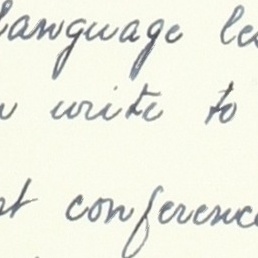 language les
write to
conference